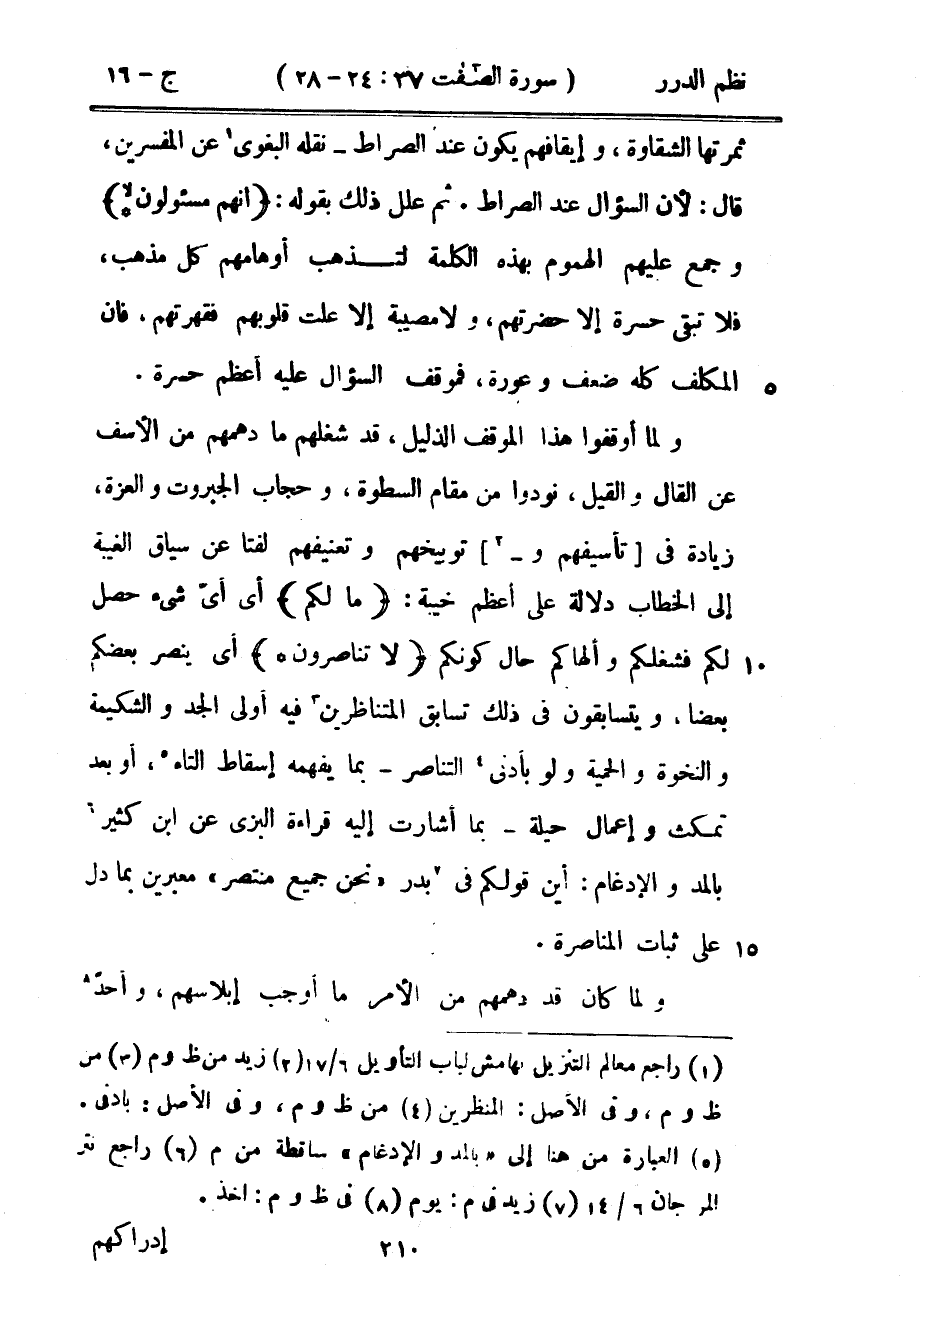 نظم الدرر ( سورة الصّٰفّت ٣٧ : ٢٤ – ٢٨ ) ج – ١٦
ثمرتها الشقاوة ، و إيقافهم يكون عند الصراط – نقله البغوى١ عن المفسرين ،
قال : لأن السؤال عند الصراط . ثم علل ذلك بقوله : ﴿ انهم مسئولون لا * ﴾
و جمع عليهم الهموم بهذه الكلمة لتـــذهب أوهامهم كل مذهب ،
فلا تبقى حسرة إلا حضرتهم ، و لا مصيبة إلا علت قلوبهم فقهرتهم ، فان
٥ المكلف كله ضعف و عورة ، فموقف السؤال عليه أعظم حسرة .
و لما أوقفوا هذا الموقف الذليل ، قد شغلهم ما دهمهم من الأسف
عن القال و القيل ، نودوا من مقام السطوة ، و حجاب الجبروت و العزة ،
زيادة فى [ تأسيفهم و –٢ ] توبيخهم و تعنيفهم لفتا عن سياق الغيبة
إلى الخطاب دلالة على أعظم خيبة : ﴿ ما لكم ﴾ أى أىّ شىء حصل
١٠ لكم فشغلكم و ألهاكم حال كونكم ﴿ لا تناصرون ه ﴾ أى ينصر بعضكم
بعضا ، و يتسابقون فى ذلك تسابق المتناظرين٣ فيه أولى الجد و الشكيمة
و النخوة و الحمية و لو بأدنى٤ التناصر – بما يفهمه إسقاط التاء٥ ، أو بعد
تمكث و إعمال حيلة – بما أشارت إليه قراءة البزى عن ابن كثير٦
بالمد و الإدغام : أين قولكم فى ٧بدر « نحن جميع منتصر » معبرين بما دل
١٥ على ثبات المناصرة .
و لما كان قد دهمهم من الأمر ما أوجب إبلاسهم ، و أحدّ٨
(١) راجع معالم التنزيل بهامش لباب التأويل ٦/١٧ (٢) زيد من ظ و م (٣) من
ظ و م ، و فى الأصل : المنظرين (٤) من ظ و م ، و فى الأصل : بادنى .
(٥) العبارة من هنا إلى « بالمد و الإدغام » ساقطة من م (٦) راجع نثر
المرجان ٦ / ١٤ (٧) زيد فى م : يوم (٨) فى ظ و م : اخذ .
٢١٠ إدراكهم